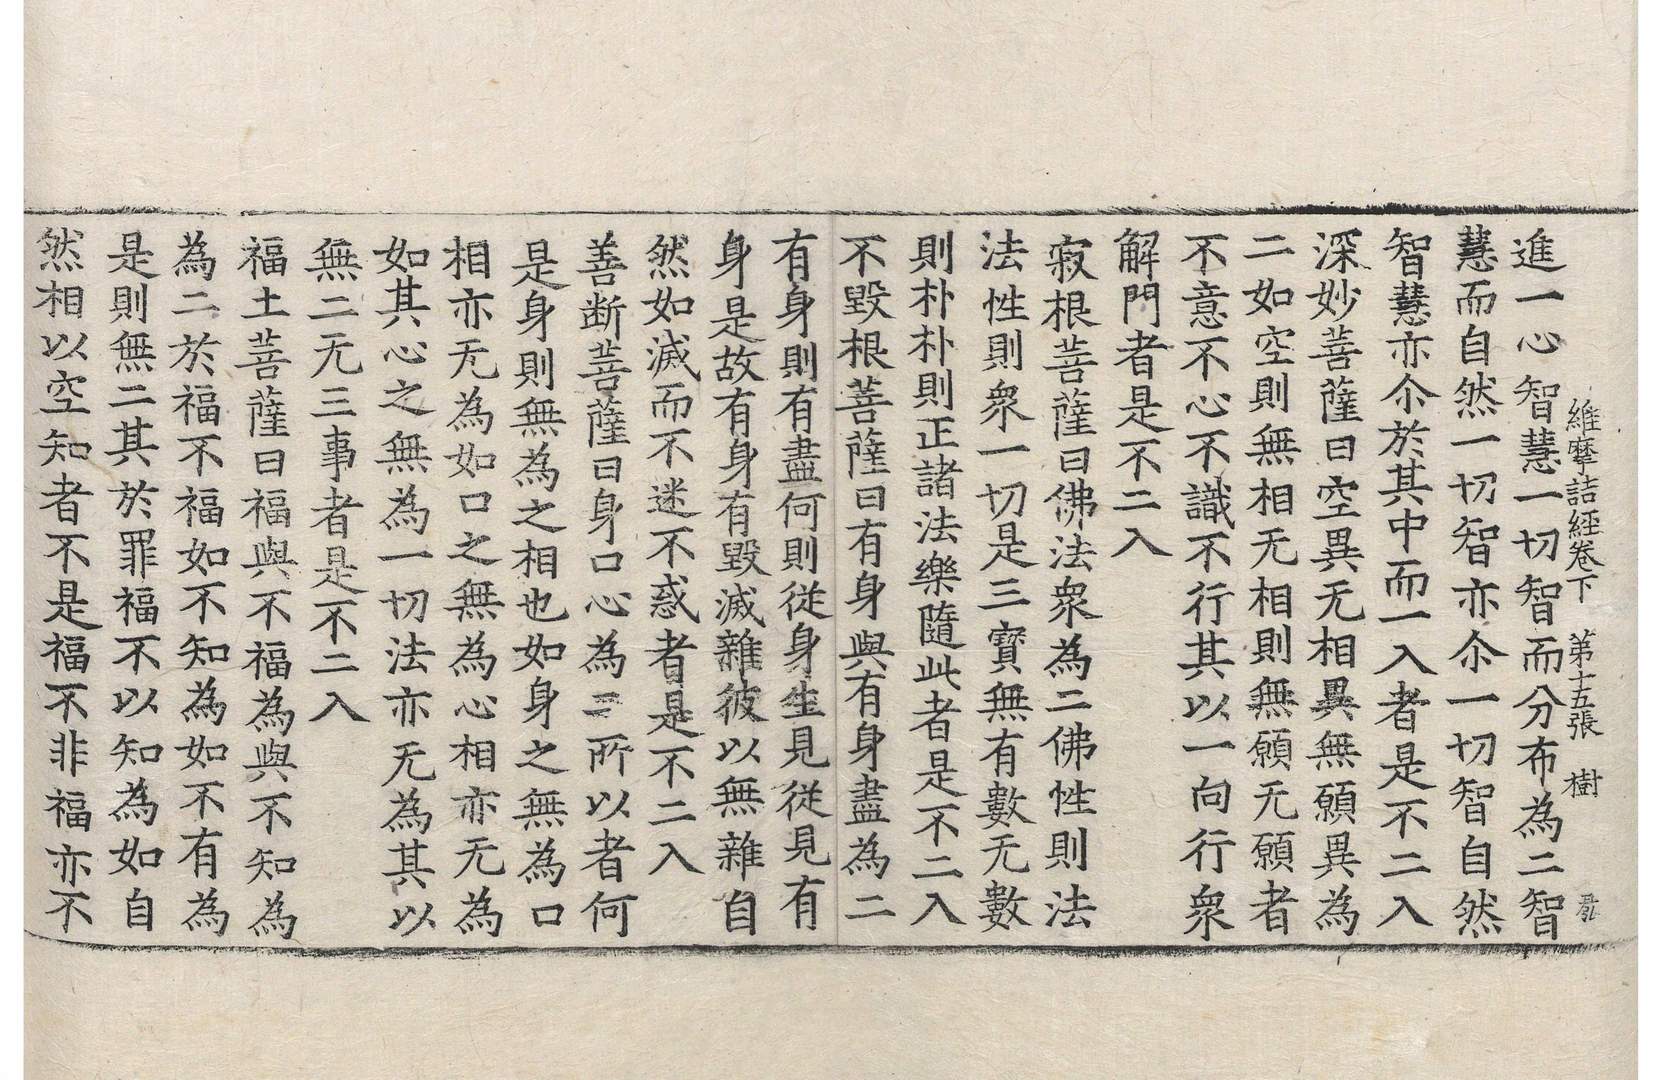 維摩詰經卷下 第十五張 樹
進一心智慧一切智而分布為二智
慧而自然一切智亦尒一切智自然
智慧亦尒於其中而一入者是不二入
深妙菩薩曰空異无相異無願異為
二如空則無相无相則無願无願者
不意不心不識不行其以一向行衆
解門者是不二入
寂根菩薩曰佛法衆為二佛性則法
法性則衆一切是三寶無有數无數
則朴朴則正諸法樂隨此者是不二入
不毀根菩薩曰有身與有身盡為二
有身則有盡何則從身生見從見有
身是故有身有毀滅雜彼以無雜自
然如滅而不迷不惑者是不二入
善断菩薩曰身口心為二所以者何
是身則無為之相也如身之無為口
相亦无為如口之無為心相亦无為
如其心之無為一切法亦无為其以
無二无三事者是不二入
福土菩薩曰福與不福為與不知為
為二於福不福如不知為如不有為
是則無二其於罪福不以知為如自
然相以空知者不是福不非福亦不